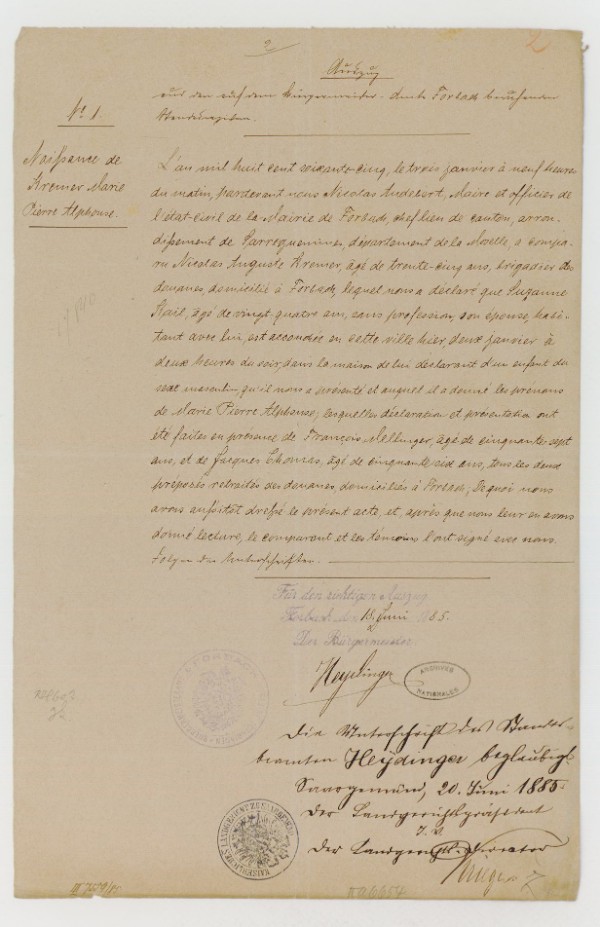 2
2
Auszug
aus den auf dem Bürgermeister-Amte Forbach beruhenden
Standesregistern.
No 1.
Naissance de
Kremer Marie
Pierre Alphonse.
L'an mil huit cent soixante-cinq, le trois janvier à neuf heures
du matin, pardevant nous Nicolas Audebert, Maire et officier de
l'état-civil de la Mairie de Forbach, chef lieu de canton, arron-
dissement de Sarreguemines, département de la Moselle, a compa-
ru Nicolas Auguste Kremer, âgé de trente-cinq ans, brigadier des
douanes, domicilié à Forbach, lequel nous a déclaré que Suzanne
âgé de vingt-quatre ans, sans profession, son épouse, habi-
tant avec lui, est accouchée en cette ville hier, deux janvier à
deux heures du soir, dans la maison de lui déclarant d'un enfant du
sexe masculin, qu'il nous a présenté et auquel il a donné les prénoms
de Marie Pierre Alphonse; lesquelles déclaration et présentation ont
été faites en présence de François Mellinger, âgé de cinquante-sept
ans, et de Jacques Thomas, âgé de cinquante-six ans, tous les deux
préposés retraités des douanes, domiciliés à Forbach; De quoi nous
avons aussitôt dressé le présent acte, et, après que nous leur en avons
donné lecture, le comparant et les témoins l'ont signé avec nous.
Folgen die Unterschriften.
Für den richtigen Auszug.
Forbach den 19. Juni 1885.
Der Bürgermeister:
Heydinger
ARCHIVES
NATIONALES
Die Unterschrift des Standes-
beamten Heydinger beglaubigt.
Saargemünd, 20. Juni 1885.
Der Landgerichtspräsident
J. V.
Der Landgerichtsdirector